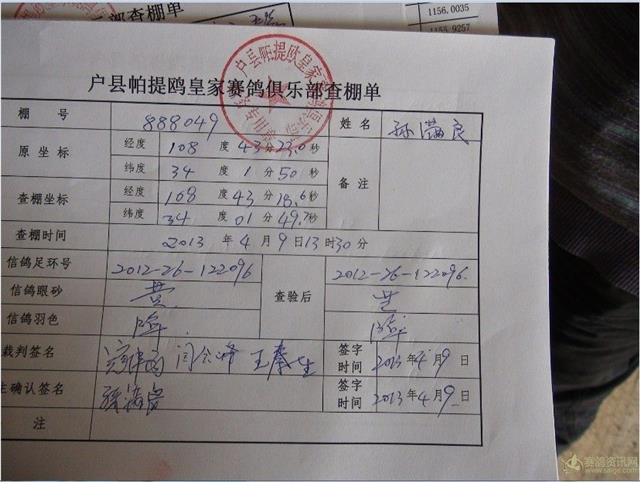 部查棚单
1156.0035
1155.9257
户县帕提鸥皇家赛鸽俱乐部查棚单
棚 号 888049 姓 名 孙满良
原 坐 标 经度 108 度 43 分 23.0 秒 备 注
纬度 34 度 1 分 50 秒
查棚坐标 经度 108 度 43 分 18.6 秒
纬度 34 度 01 分 49.7 秒
查棚时间 2013 年 4 月 9 日 13 时 30 分
信鸽足环号 2012-26-122096 查验后 2012-26-122096
信鸽眼砂 黄 黄
信鸽羽色 雨
裁判签名 签字时间 2013 年 4 月 9 日
主确认签名 孙满良 签字时间 2013 年 4 月 9 日
注
赛鸽资讯网
www.saige.com